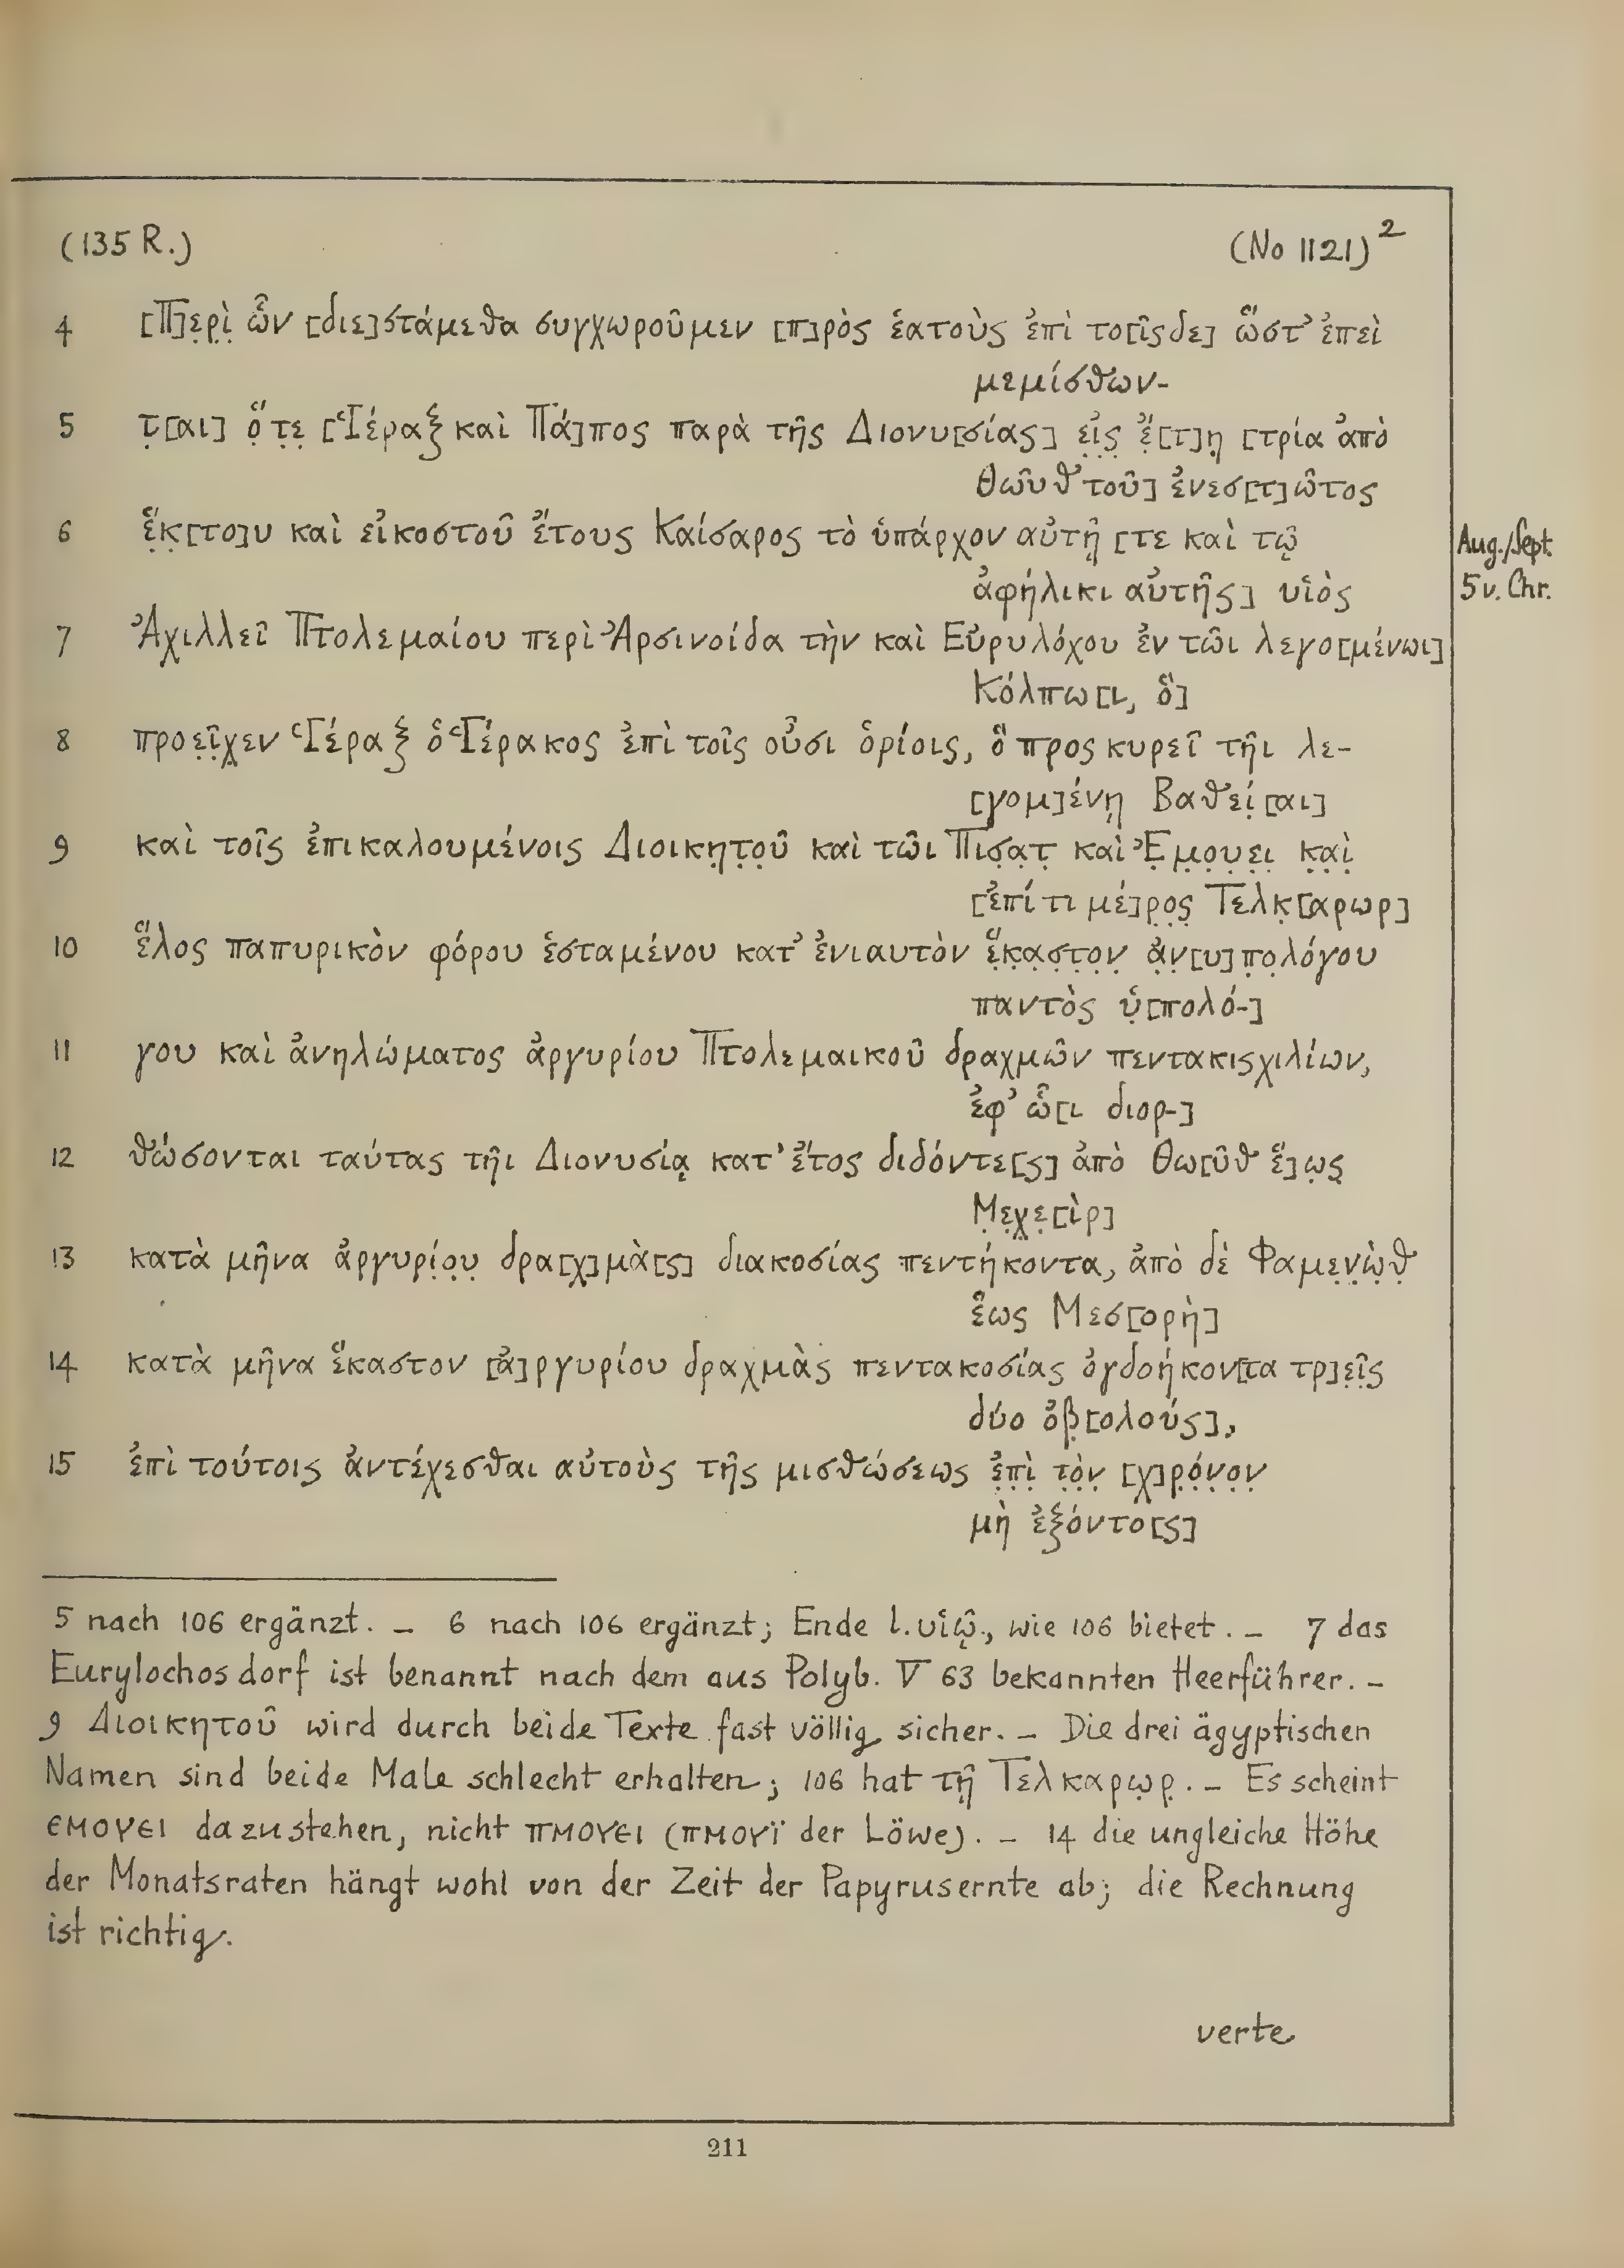 (135 R.) (No 1121)²
4 [Π]ε̣ρ̣ὶ̣ ὧν [διε]στάμεθα συγχωροῦμεν [π]ρὸς ἑατοὺς ἐπὶ το[ῖςδε] ὥστ’ ἐπεὶ
μεμίσθων-
5 τ̣[αι] ὅ̣ τ̣ε̣ [Ἱέραξ καὶ Πά]πος παρὰ τῆς Διονυ[σίας] ε̣ἰ̣ς̣ ἔ̣[τ]η̣ [τρία ἀπὸ
Θωὺθ τοῦ] ἐνεσ[τ]ῶτος
6 ἕ̣κ̣[το]υ καὶ εἰκοστοῦ ἔτους Καίσαρος τὸ ὑπάρχον αὐτῇ [τε καὶ τῷ
ἀφήλικι αὐτῆς] υἱὸς
Aug./Sept.
5 v. Chr.
7 Ἀχιλλεῖ Πτολεμαίου περὶ Ἀρσινοίδα τὴν καὶ Εὐρυλόχου ἐν τῶι λεγο[μένωι]
Κόλπω[ι, ὃ]
8 προε̣ῖ̣χ̣εν Ἱέραξ ὁ Ἱέρακος ἐπὶ τοῖς οὖσι ὁρίοις, ὃ προς κυρεῖ τῆι λε-
[γομ]ένῃ Βαθεί̣[αι]
9 καὶ τοῖς ἐπικαλουμένοις Διοικη̣τ̣ο̣ῦ καὶ τῶι Πισ̣α̣τ̣ καὶ Ἐ̣μ̣ο̣υ̣ε̣ι̣ κ̣α̣ὶ̣
[ἐπί τι μέ]ρ̣ο̣ς̣ Τελκ̣[αρωρ]
10 ἕλος παπυρικὸν φόρου ἑσταμένου κατ’ ἐνιαυτὸν ἕ̣κ̣α̣σ̣τ̣ο̣ν̣ ἀ̣ν̣[υ]π̣ο̣λόγου
παντὸς ὑ̣[πολό-]
11 γου καὶ ἀνηλώματος ἀργυρίου Πτολεμαικοῦ δραχμῶν πεντακιςχιλίων,
ἐφ’ ὧ[ι διορ-]
12 θώσονται ταύτας τῆι Διονυσίᾳ κατ’ ἔτος διδόντε[ς] ἀπὸ Θω[ὺθ ἕ]ω̣ς̣
Μ̣ε̣χ̣ε̣[ὶρ]
13 κατὰ μῆνα ἀργυρί̣ο̣υ̣ δρα[χ]μὰ[ς] διακοσίας πεντήκοντα, ἀπὸ δὲ Φαμε̣ν̣ὼ̣θ̣
ἕως Μεσ[ορὴ]
14 κατὰ μῆνα ἕκαστον [ἀ]ργυρίου δραχμὰς πεντακοσίας ὀγδοήκον[τα τρ]ε̣ῖ̣ς
δύο ὀβ̣[ολούς],
15 ἐπὶ τούτοις ἀντέχεσθαι αὐτοὺς τῆς μισθώσεως ἐ̣π̣ὶ̣ τ̣ὸ̣ν̣ [χ]ρ̣ό̣ν̣ο̣ν̣
μὴ ἐξόντο[ς]
5 nach 106 ergänzt. – 6 nach 106 ergänzt; Ende l. υἱῷ., wie 106 bietet. – 7 das
Eurylochosdorf ist benannt nach dem aus Polyb. V 63 bekannten Heerführer. –
9 Διοικητοῦ wird durch beide Texte fast völlig sicher. – Die drei ägyptischen
Namen sind beide Male schlecht erhalten; 106 hat τῇ Τελκαρω̣ρ̣. – Es scheint
ⲉⲙⲟⲩⲉⲓ dazustehen, nicht ⲡⲙⲟⲩⲉⲓ (ⲡⲙⲟⲩⲓ̈ der Löwe). – 14 die ungleiche Höhe
der Monatsraten hängt wohl von der Zeit der Papyrusernte ab; die Rechnung
ist richtig.
verte
211